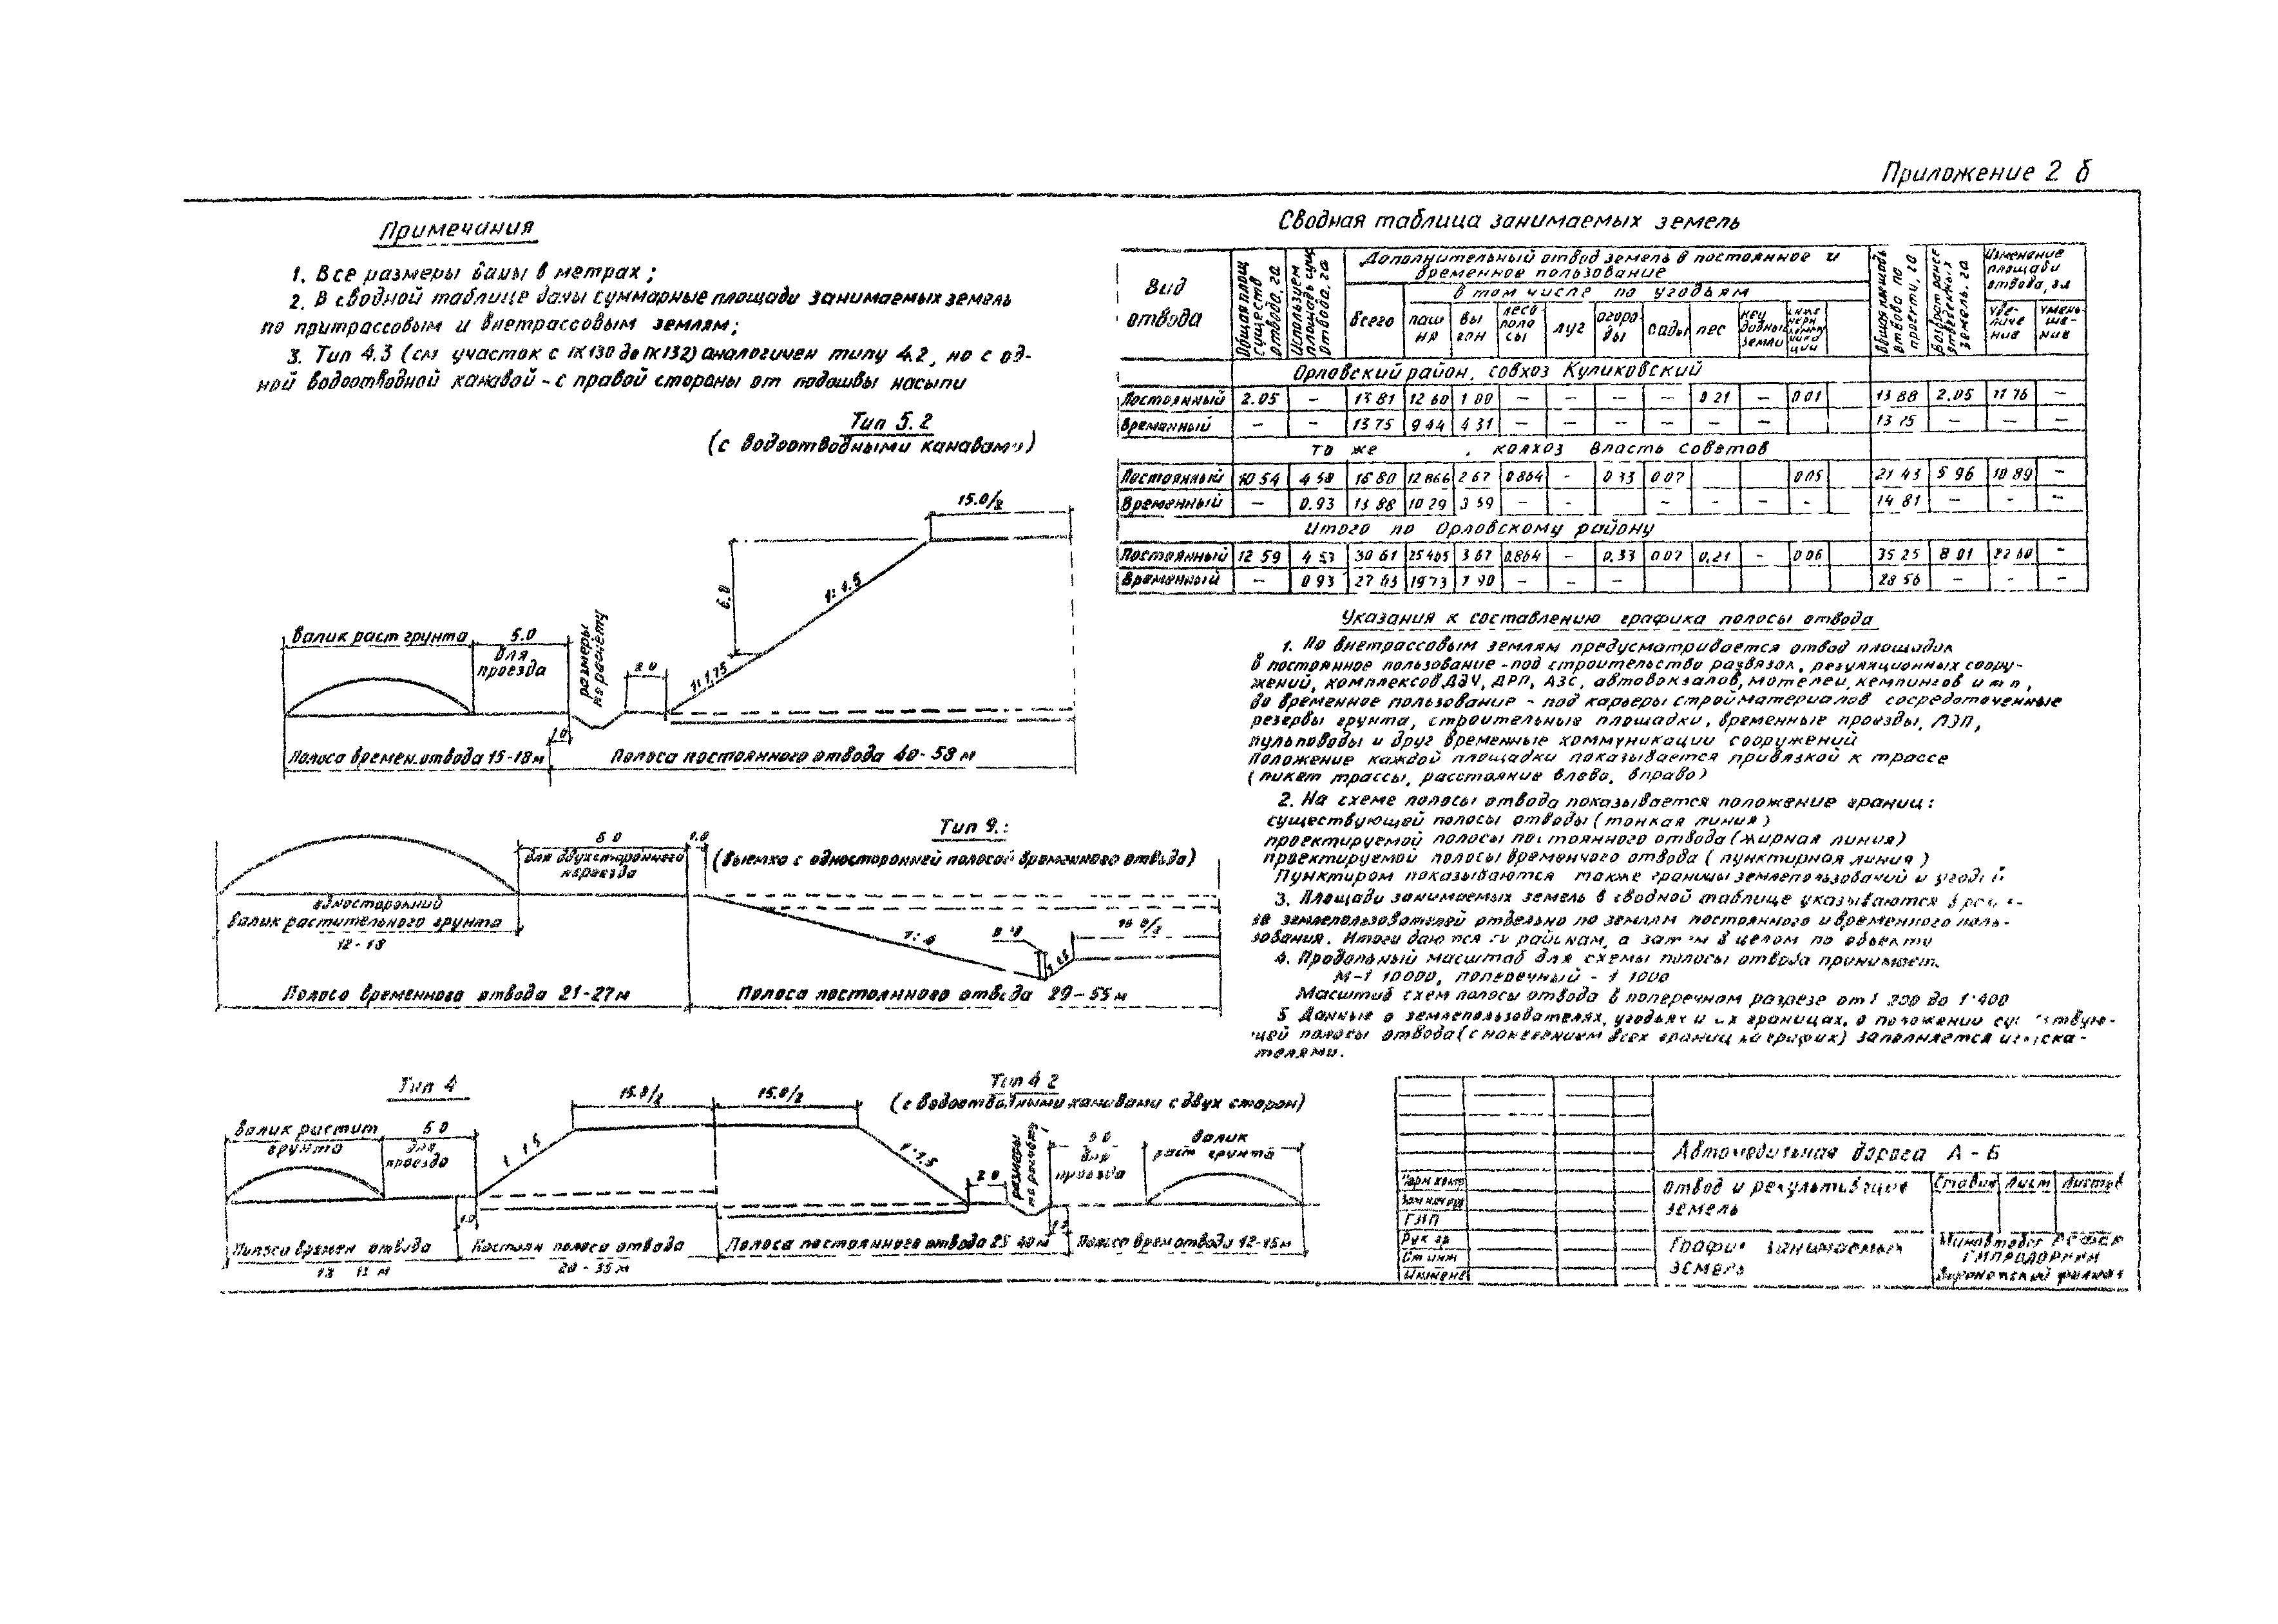 Приложение 2 б
Примечания
1. Все размеры даны в метрах;
2. В сводной таблице даны суммарные площади занимаемых земель
по притрассовым и внетрассовым землям;
3. Тип 4.3 (см участок с ПК130 до ПК132) аналогичен типу 4.2, но с од-
ной водоотводной канавой - с правой стороны от подошвы насыпи
Тип 5.2
(с водоотводными канавами)
15.0/2
6.0
1:1.5
1:1,75
Валик раст грунта
5.0
для
проезда
размеры
по расчёту
2 0
1.0
Полоса времен.отвода 15-18м
Полоса постоянного отвода 40-58 м
Тип 9.:
(Выемка с односторонней полосой временного отвода)
5 0
1.0
для двухстороннего
переезда
односторонний
валик растительного грунта
12-18
Полоса временного отвода 21-27м
Полоса постоянного отвода 29-55м
Тип 4
Валик растит
грунта
5 0
для
проезда
15.0/2
15.0/2
1.0
Полоса времен отвода
Постоян полоса отвода
20 - 35 м
Тип 4 2
(с водоотводными канавами с двух сторон)
1:1.5
2 0
размеры
по расчёту
для
проезда
валик
раст грунта
Полоса постоянного отвода 25 40м
Полоса врем отвода 12-15м
Сводная таблица занимаемых земель
Вид
отвода
Общая площ
существ
отвода, га
Используем
площадь сущ
отвода, га
Дополнительный отвод земель в постоянное и
временное пользование
всего
в том числе по угодьям
паш
ня
вы
гон
лесо
поло
сы
луг
огоро
ды
сады
лес
неу
добные
земли
Общая площадь
отвода по
проекту, га
Возврат ранее
отведенных
земель. га
Изменение
площади
отвода, га
уве-
личе
ние
умень
ше-
ние
Орловский район, совхоз Куликовский
Постоянный 2.05 – 13 81 12 60 1 00 – – – – 0 21 – 0 01 13 88 2.05 11 76 –
Временный – – 13 75 9 44 4 31 – – – – – – 13 75 – – –
то же , колхоз Власть Советов
Постоянный 10 54 4 58 16 80 12 866 2 67 0 864 - 0 33 0 07 0 05 21 43 5 96 10 89 –
Временный – 0.93 13 88 10 29 3 59 – - – – – – - 14 81 – - -
Итого по Орловскому району
Постоянный 12 59 4 53 30 61 25 465 3 67 0.864 – 0.33 0 07 0.21 – 0 06 35 25 8 01 22 60 –
Временный – 0 93 27 63 19 73 7 90 – – – 28 56 – - –
Указания к составлению графика полосы отвода
1. По внетрассовым землям предусматривается отвод площадок
в постоянное пользование - под строительство развязок, регуляционных соору-
жений, комплексов ДЭУ, ДРП, АЗС, автовокзалов, мотелей, кемпингов и т п,
во временное пользование - под карьеры стройматериалов сосредоточенные
резервы грунта, строительные площадки, временные проезды, ЛЭП,
пульповоды и друг временные коммуникации сооружений
Положение каждой площадки показывается привязкой к трассе
(пикет трассы, расстояние влево, вправо)
2. На схеме полосы отвода показывается положение границ:
существующей полосы отвода (тонкая линия)
проектируемой полосы постоянного отвода (жирная линия)
проектируемой полосы временного отвода (пунктирная линия)
Пунктиром показываются также границы землепользований и угодий
3. Площади занимаемых земель в сводной таблице указываются
землепользователей отдельно по землям постоянного и временного поль-
зования. Итоги даются по районам, а затем в целом по объекту
4. Продольный масштаб для схемы полосы отвода принимает.
М-1 10000, поперечный - 1 1000
Масштаб схем полосы отвода в поперечном разрезе от 1 200 до 1:400
5 Данные о землепользователях, угодьях и их границах, о положении существую-
щей полосы отвода (с нанесением всех границ на график) заполняется изыска-
телями.
Автомобильная дорога А - Б
Отвод и рекультивация
земель
Стадия Лист Листов
График занимаемых
земель
Минавтодор РСФСР
ГИПРОДОРНИИ
Воронежский филиал
ГИП
Рук гр
Ст инж
Инженер